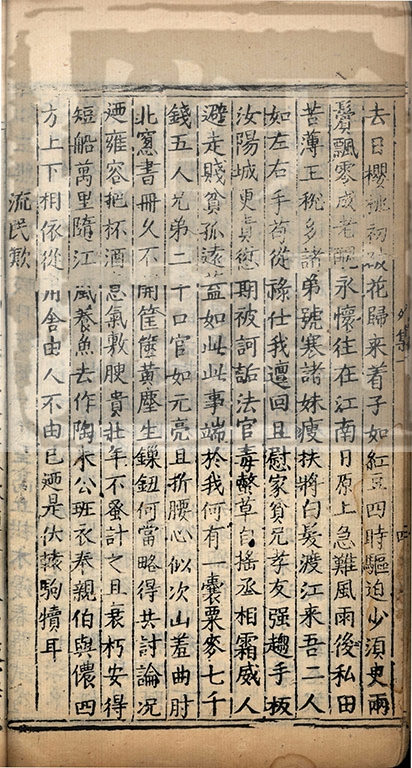 去日櫻桃初破花歸来着子如紅豆四時驅迫少須臾兩
鬢飄零成老醜永懷往在江南日原上急難風雨後私田
苦薄王稅多諸弟號寒諸妹瘦扶將白髮渡江来吾二人
如左右手苟從祿仕我邅回且慰家貧兄孝友强趨手板
汝陽城更責愆期被訶詬法官毒螫草自摇丞相霜威人
避走賤貧孤遠蓋如此此事端於我何有一囊粟麥七千
錢五人兄弟二十口官如元亮且折腰心似次山羞曲肘
北窻書冊久不開筐篋黃塵生鏁鈕何當略得共討論況
廼雍容把杯酒意氣敷腴貴壯年不蚤計之且衰朽安得
短船萬里隨江風養魚去作陶朱公班衣奉親伯與儂四
方上下相依從用舍由人不由已廼是伏轅駒犢耳
流民歎
外集
四